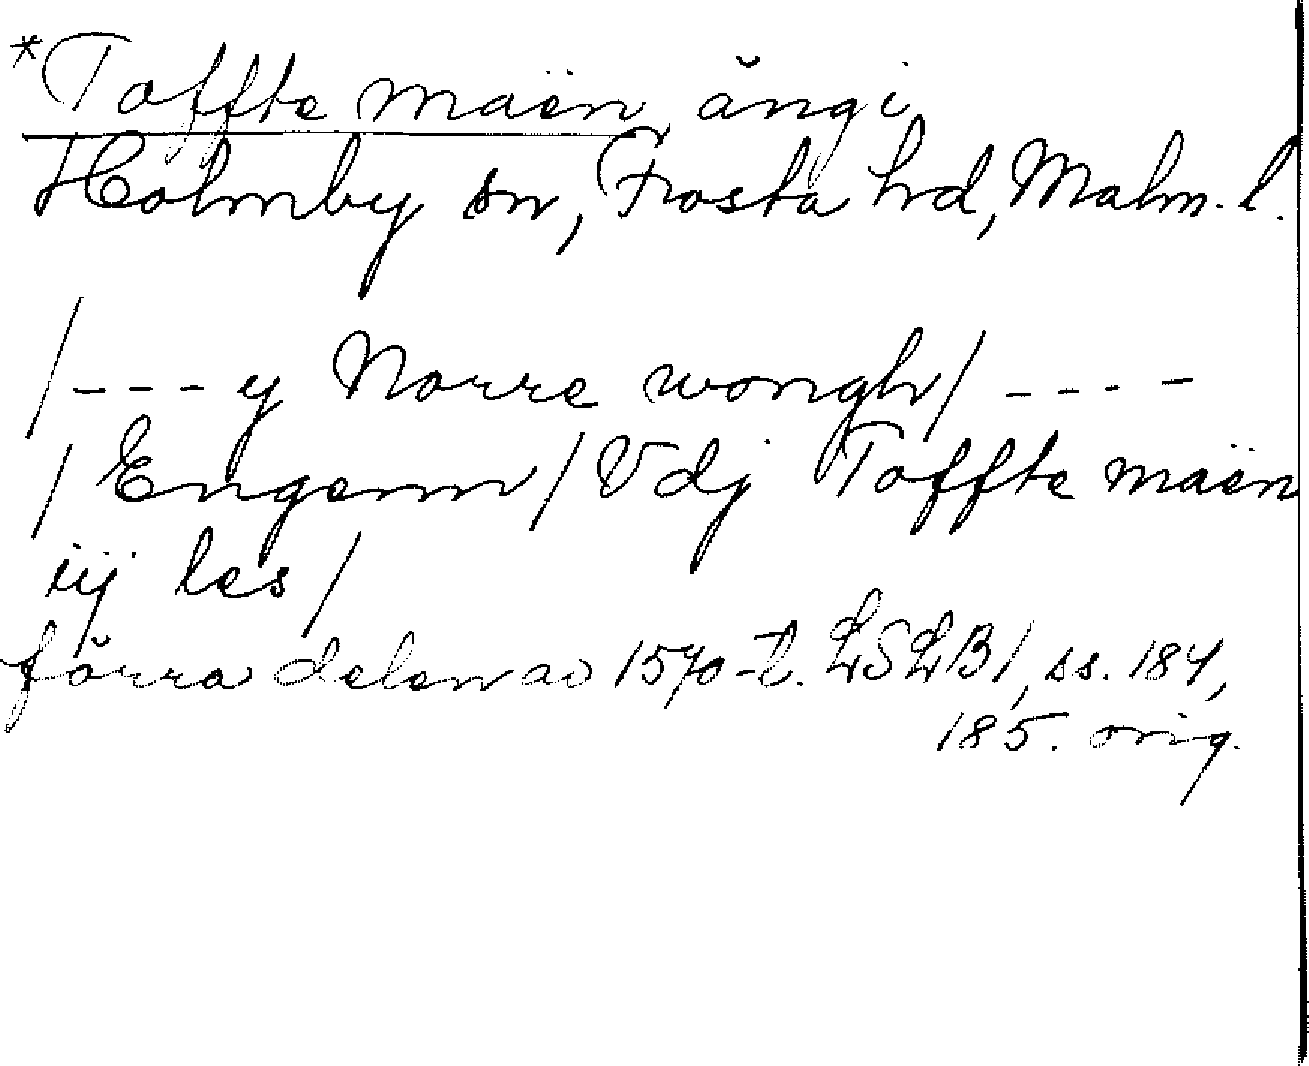 *Toffte maën, äng i
Holmby sn, Frosta hd, Malm. l.
/--- y Norre wongh/ ----
/Engenn/ Vdj Toffte maën
iij les/
förra delen av 1570-t. LSLB1, ss. 184,
185. orig.